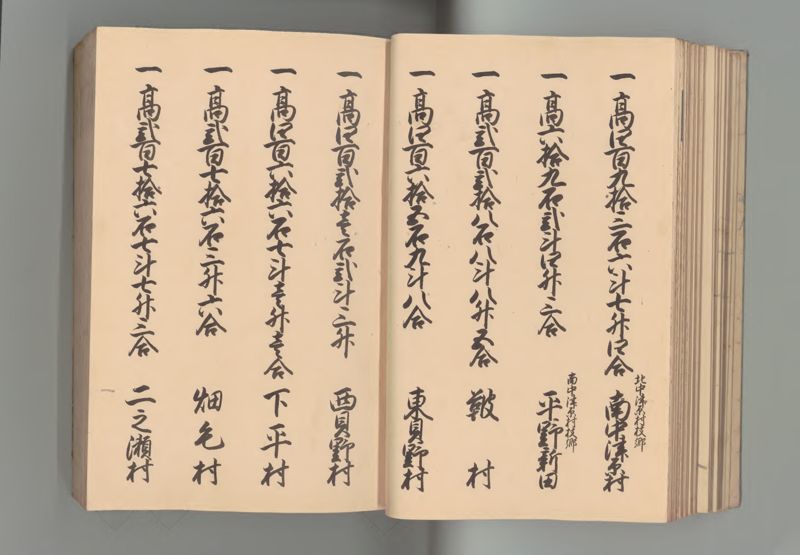 一 高四百九拾三石六斗七升四合
北中津原村枝郷
南中津原村
一 高六拾九石弐斗四升三合
南中津原村枝郷
平野新田
一 高弐百弐拾八石八斗八升五合 鞁村
一 高四百六拾五石九斗八合 東貝野村
一 高四百弐拾壱石弐斗三升 西貝野村
一 高四百六拾六石七斗壱升壱合 下平村
一 高弐百七拾六石三升六合 畑毛村
一 高弐百七拾六石七斗七升三合 二之瀬村